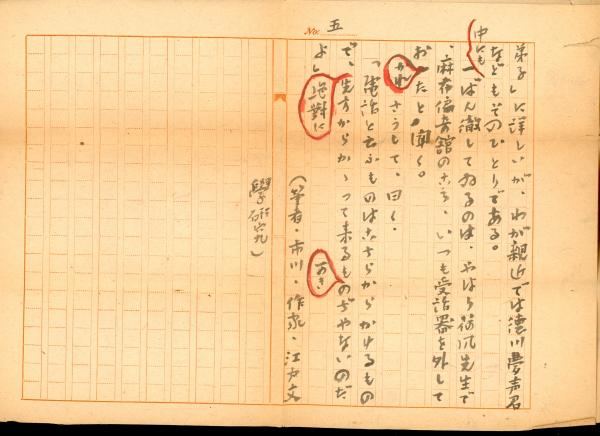 No. 五
弟子」に詳しいが、わが親近では徳川夢声君
などもそのひとりである。
中にも
いちばん徹してゐるのは、やはり荷風先生で
、麻布偏奇館のころ、いつも受話器を外して
おかれたと聞く。
さうして、曰く、
「電話と云ふものはこちらからかけるもの
で、先方からかゝつて来るものぢやないのだ
よ」絶對に
(筆者・市川・作家・江戸文
學研究)